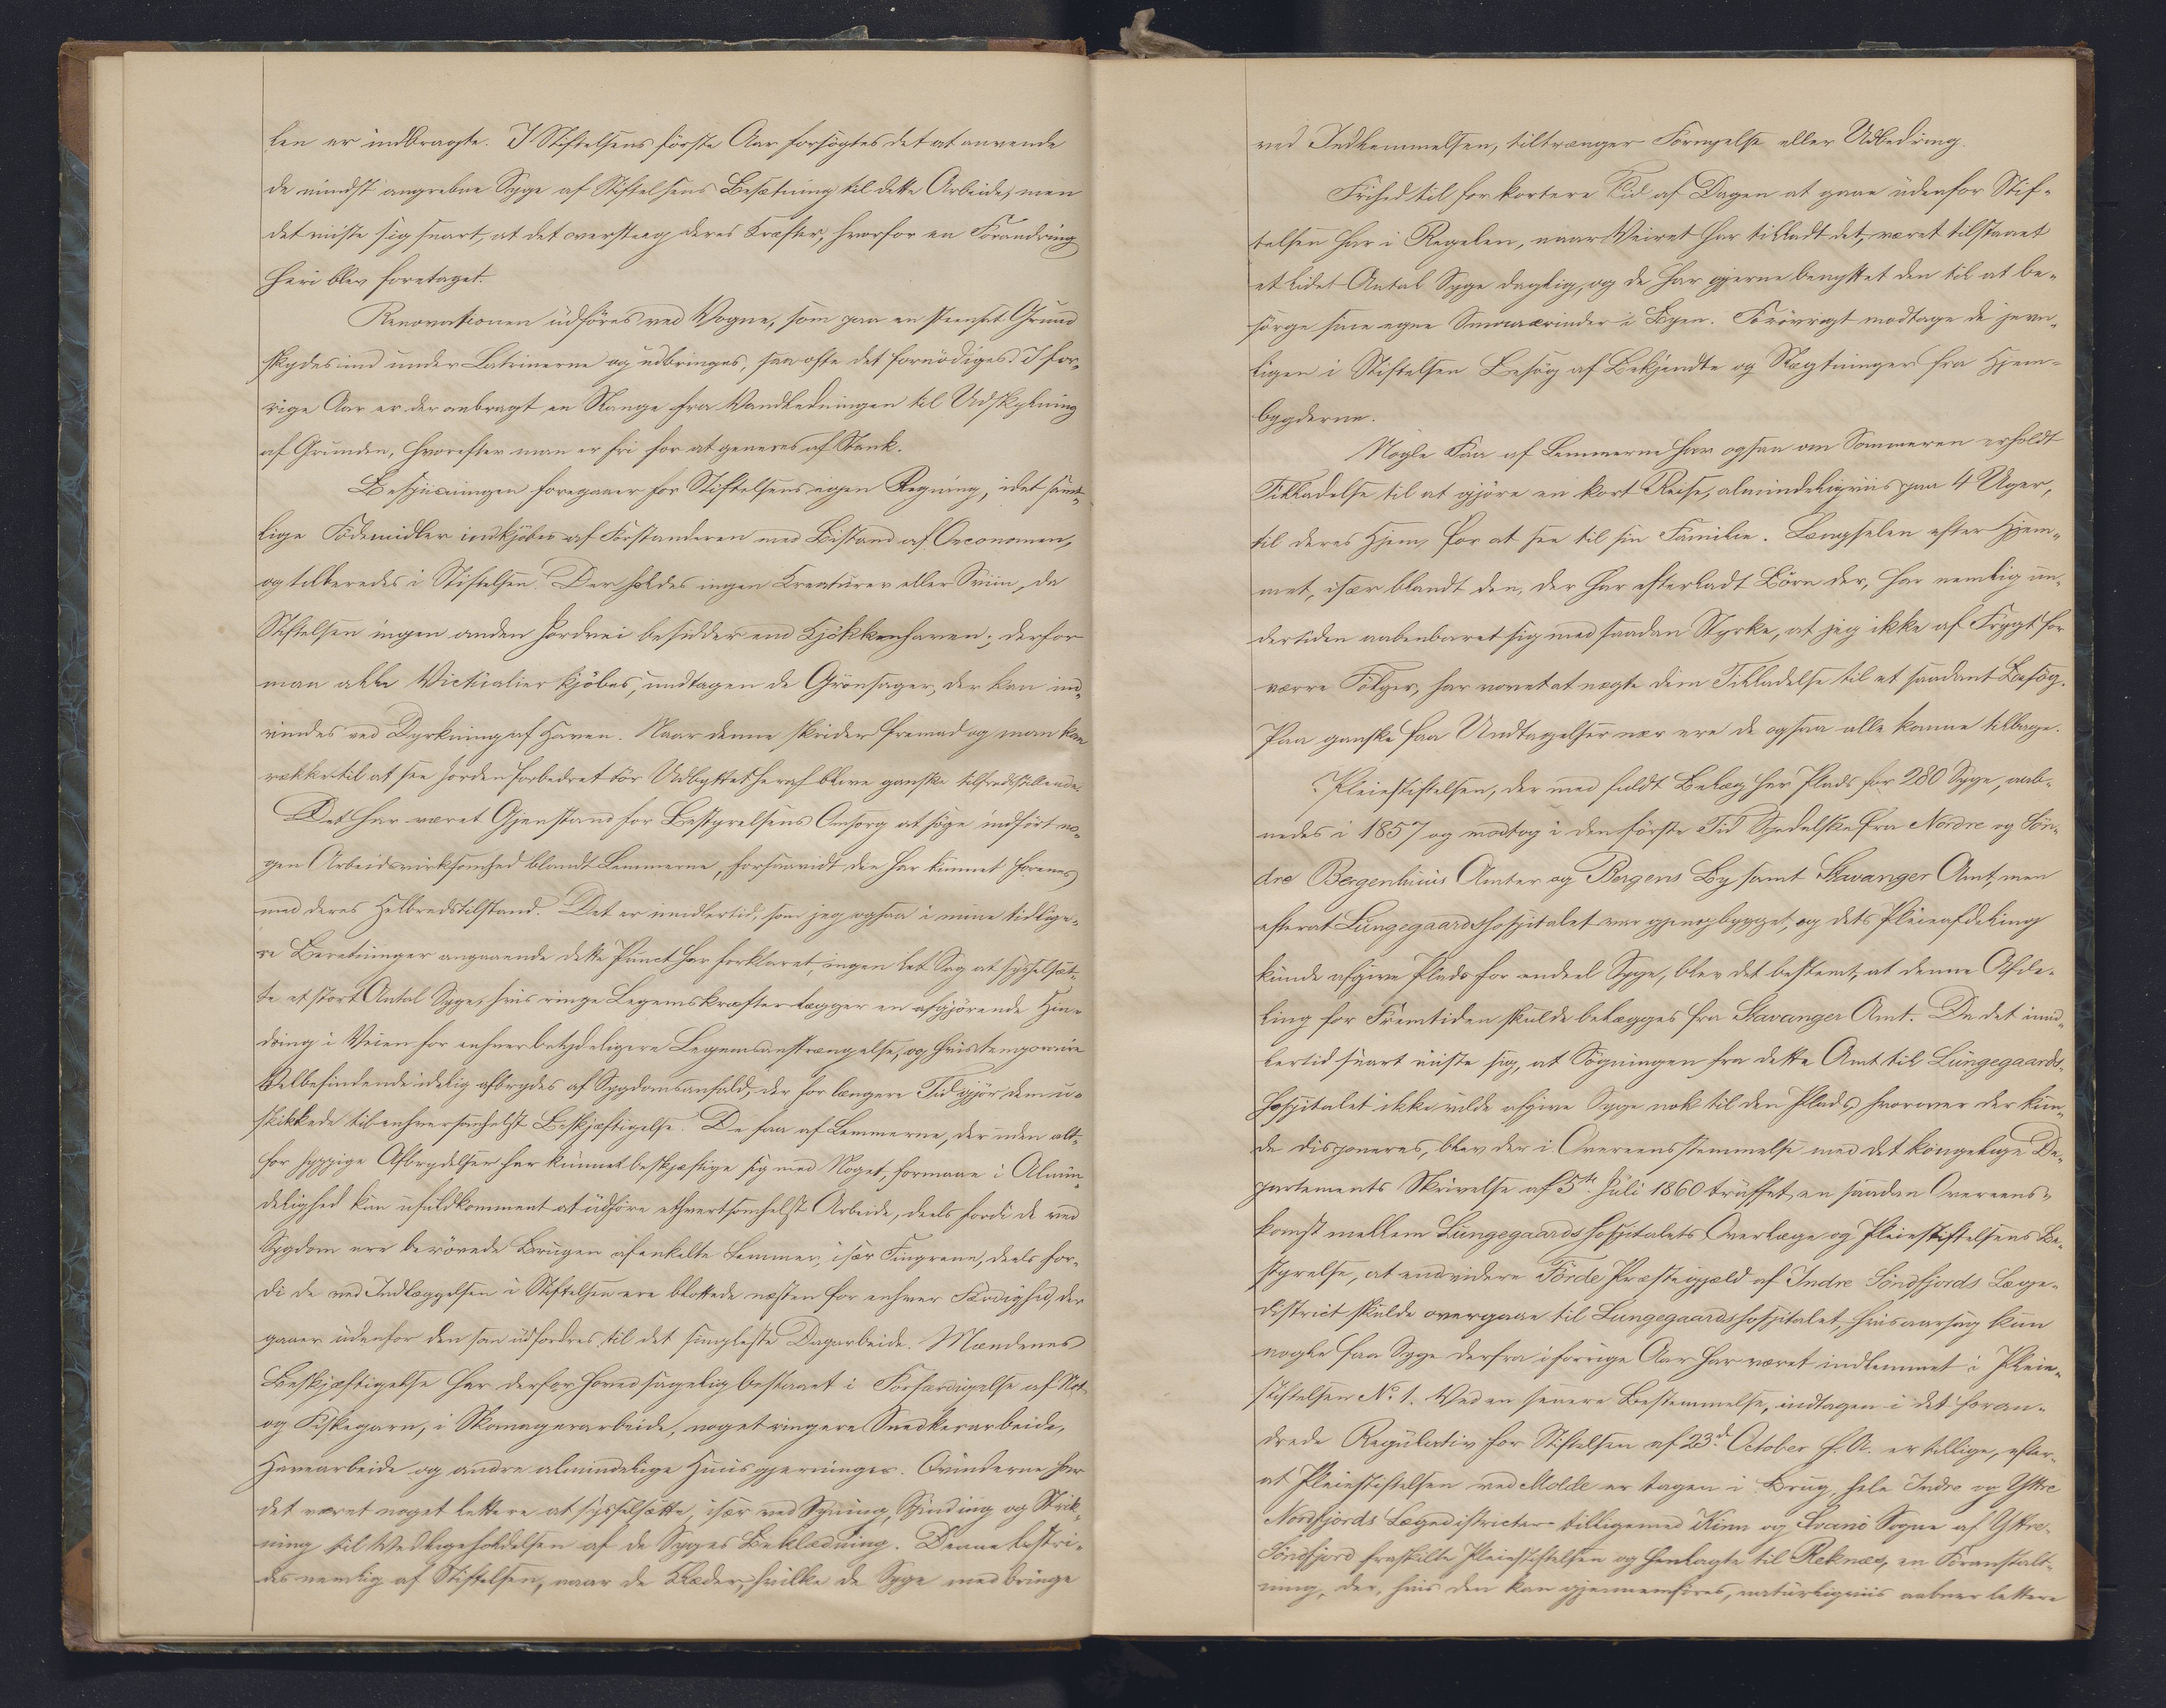 len er indbragte. I Stiftelsens første Aar forsøgtes det at anvende
de mindst angrebne Syge af Stiftelsens Besætning til dette Arbeide, men
det viiste sig snart, at det oversteeg deres Kræfter, hvorfor en Forandring
heri blev foretaget.
Renovationen udføres ved Vogne, som paa en steensat Grund
skydes ind under Latrinerne og udbringes, saa ofte det fornødiges. I for-
rige Aar er der anbragt en Slange fra Vandledningen til Udskylning
af Grunden, hvorefter man er fri for at generes af Stank.
Bespiisningen foregaaer for Stiftelsens egen Regning, idet samt-
lige Fødemidler indkjøbes af Forstanderen med Bistand af Oeconomen,
og tilberedes i Stiftelsen. Der holdes ingen Kreaturer eller Sviin, da
Stiftelsen ingen anden Jordvei besidder end Kjøkkenhaven; derfor
maa alle Victualier kjøbes, undtagen de Grønsager, der kan ind-
vindes ved Dyrkning af Haven. Naar denne skrider fremad og man kan
række til at see Jorden forbedret tør Udbyttet heraf blive ganske tilfredsstillende.
Det har været Gjenstand for Bestyrelsens Omsorg at søge indført no-
gen Arbeidsvirksomhed blandt Lemmerne, forsaavidt den har kunnet forenes
med deres Helbredstilstand. Det er imidlertid, som jeg ogsaa i mine tidlige-
re Beretninger angaaende dette Punct har forklaret, ingen let Sag at sysselsæt-
te et stort Antal Syge, hvis ringe Legemskræfter lægger en afgjørende Hin-
dring i Veien for enhver betydeligere Legemsanstrængelse, og hvis temporaire
Velbefindende idelig afbrydes af Sygdomsanfald, der for længere Tid gjør dem u-
skikkede til enhversomhelst Beskjæftigelse. De faa af Lemmerne, der uden alt-
for hyppige Afbrydelser har kunnet beskjæftige sig med Noget, formaae i Almin-
delighed kun ufuldkomment at udføre ethvertsomhelst Arbeide, deels fordi de ved
Sygdom ere berøvede Brugen af enkelte Lemmer, især Fingrene, deels for-
di de ved Indlæggelsen i Stiftelsen ere blottede næsten for enhver Færdighed, der
gaaer udenfor den som udfordres til det simpleste Dagarbeide. Mændenes
Beskjæftigelse har derfor hovedsagelig bestaaet i Forfærdigelse af Not-
og Fiskegarn, i Skomagerarbeide, noget ringere Snedkerarbeide,
Havearbeide og andre almindelige Huusgjerninger. Qvinderne har
det været noget lettere at sysselsætte, især ved Syning, Spinding og Strik-
ning til Vedligeholdelsen af de Syges Beklædning. Denne bestri-
des nemlig af Stiftelsen, naar de Klæder, hvilke de Syge medbringe
ved Indkommelsen, tiltrænger Fornyelse eller Udbedring.
Frihed til for kortere Tid af Dagen at gaae udenfor Stif-
telsen har i Regelen, naar Veiret har tilladt det, været tilstaaet
et lidet Antal Syge daglig, og de har gjerne benyttet den til at be-
sørge sine egne Smaaærinder i Byen. Forøvrigt modtage de jevn-
ligen i Stiftelsen Besøg af Bekjendte og Slægtninger fra Hjem-
bygderne.
Nogle Faa af Lemmerne har ogsaa om Sommeren erholdt
Tilladelse til at gjøre en kort Reise, almindeligviis paa 4 Uger,
til deres Hjem, for at see til sin Familie. Længselen efter Hjem-
met, især blandt dem, der har efterladt Børn der, har nemlig un-
dertiden aabenbaret sig med saadan Styrke, at jeg ikke af Frygt for
værre Følger, har vovet at nægte dem Tilladelse til et saadant Besøg.
Paa ganske faa Undtagelser nær ere de ogsaa alle komne tilbage.
Pleiestiftelsen, der med fuldt Belæg har Plads for 280 Syge, aab-
nedes i 1857 og modtog i den første Tid Spedalske fra Nordre og Søn-
dre Bergenhuus Amter og Bergens By samt Stavanger Amt, men
efterat Lungegaardshospitalet var gjenopbygget, og dets Pleieafdeling
kunde afgive Plads for endeel Syge, blev det bestemt, at denne Afde-
ling for Fremtiden skulde belægges fra Stavanger Amt. Da det imid-
lertid snart viiste sig, at Søgningen fra dette Amt til Lungegaards-
hospitalet ikke vilde afgive Syge nok til den Plads, hvorover der kun-
de disponeres, blev der i Overeensstemmelse med det kongelige De-
partements Skrivelse af 5te Juli 1860 truffet en saadan Overeens-
komst mellem Lungegaardshospitalets Overlæge og Pleiestiftelsens Be-
styrelse, at endvidere Førde Præstegjæld af Indre Søndfjords Læge-
district skulde overgaae til Lungegaardshospitalet, hvisaarsag kun
nogle faa Syge derfra i forrige Aar har været indlemmet i Pleie-
stiftelsen No 1. Ved en senere Bestemmelse, indtagen i det foran-
drede Regulativ for Stiftelsen af 23d October f. A. er tillige, efter-
at Pleiestiftelsen ved Molde er tagen i Brug, hele Indre og Yttre
Nordfjords Lægedistricter tilligemed Kinn og Svanø Sogne af Yttre-
Søndfjord fraskilte Pleiestiftelsen og henlagte til Reknæs, en Foranstalt-
ning, der, hvis den kan gjennemføres, naturligviis aabner lettere